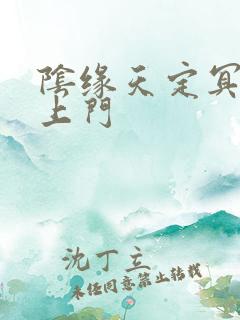 陰缘天定冥
上門
沈丁立
未经同意禁止转载